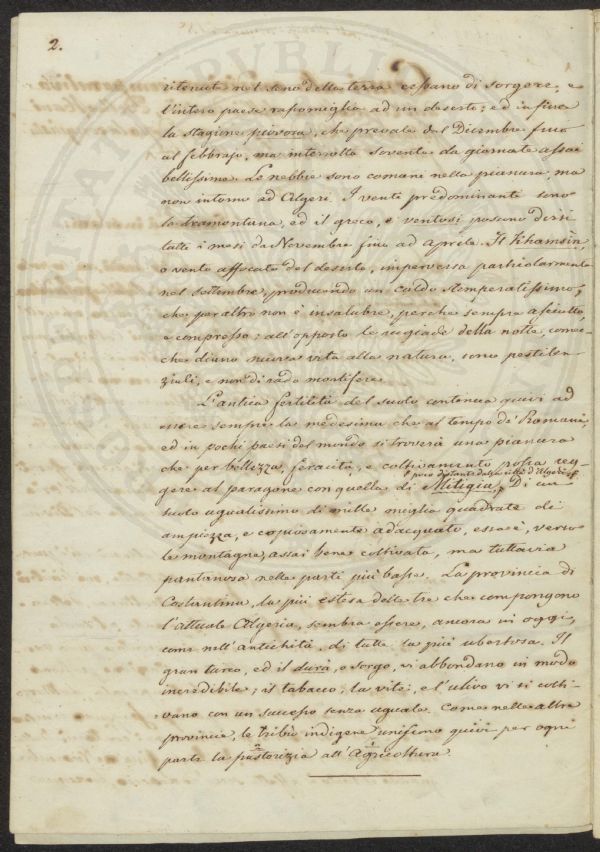 2.
ritenute nel seno della terra cessano di sorgere; e
l'intero paese rassomiglia ad un deserto; ed infine
la stagione piovosa, che prevale dal Dicembre fino
al febbrajo, ma interrotta sovente da giornate assai
bellissime. Le nebbie sono comuni nella pianura, ma
non intorno ad Algeri. I venti predominanti sono
la tramontana, ed il greco, e ventosi possono dirsi
tutti i mesi da Novembre fino ad Aprile. Il Khamsin,
o vento affocato del deserto, imperversa particolarmente
nel settembre, producendo un caldo stemperatissimo,
che per altro non è insalubre, perchè sempre asciutto,
e compresso; all'opposto le rugiade della notte, comec-
che diano nuova vita alla natura, sono pestilen-
ziali, e non di rado mortifere.
L'antica fertilità del suolo continua quivi ad
essere sempre la medesima che al tempo de' Romani,
ed in pochi paesi del mondo si troverà una pianura
che per bellezza, feracità, e coltivamento possa reg-
poco distante dalla città d'Algeri
gere al paragone con quella di Mitigia. Di un
suolo ugualissimo di mille miglia quadrate di
ampiezza, e copiosamente adacquato, essa è, verso
le montagne, assai bene coltivata, ma tuttavia
pantanosa nelle parti più basse. La provincia di
Costantina, la più estesa delle tre che compongono
l'attuale Algeria, sembra essere, ancora in oggi,
come nell'antichità, di tutte la più ubertosa. Il
gran turco, ed il durà, o sorgo, vi abbondano in modo
incredibile; il tabacco, la vite, e l'ulivo vi si colti-
vano con un successo senza uguale. Come nelle altre
provincie, le tribù indigene uniscono quivi per ogni
parte la pastorizia all'Agricoltura.